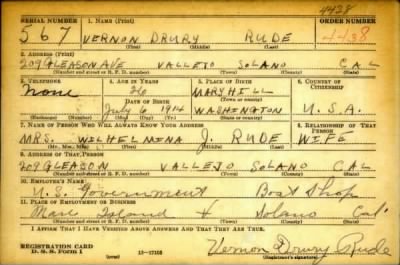 4438
SERIAL NUMBER 1. NAME (Print) ORDER NUMBER
567 VERNON DRURY RUDE 4438
(First) (Middle) (Last)
2. ADDRESS (Print)
209 GLEASON AVE VALLEJO SOLANO CAL
(Number and street or R. F. D. number) (Town) (County) (State)
3. TELEPHONE 4. AGE IN YEARS 5. PLACE OF BIRTH 6. COUNTRY OF CITIZENSHIP
None 26 MARYHILL
DATE OF BIRTH (Town or county)
July 6 1914 WASHINGTON U.S.A.
(Mo.) (Day) (Yr.) (State or country)
7. NAME OF PERSON WHO WILL ALWAYS KNOW YOUR ADDRESS 8. RELATIONSHIP OF THAT PERSON
MRS. WILHELMINA J. RUDE WIFE
(Mr., Mrs., Miss) (First) (Middle) (Last)
9. ADDRESS OF THAT PERSON
209 GLEASON VALLEJO SOLANO CAL
(Number and street or R. F. D. number) (Town) (County) (State)
10. EMPLOYER'S NAME
U.S. Government Boat Shop
11. PLACE OF EMPLOYMENT OR BUSINESS
Mare Island Solano Cal
(Number and street or R. F. D. number) (Town) (County) (State)
I AFFIRM THAT I HAVE VERIFIED ABOVE ANSWERS AND THAT THEY ARE TRUE.
REGISTRATION CARD
D. S. S. Form 1 Vernon Drury Rude
(Registrant's signature)